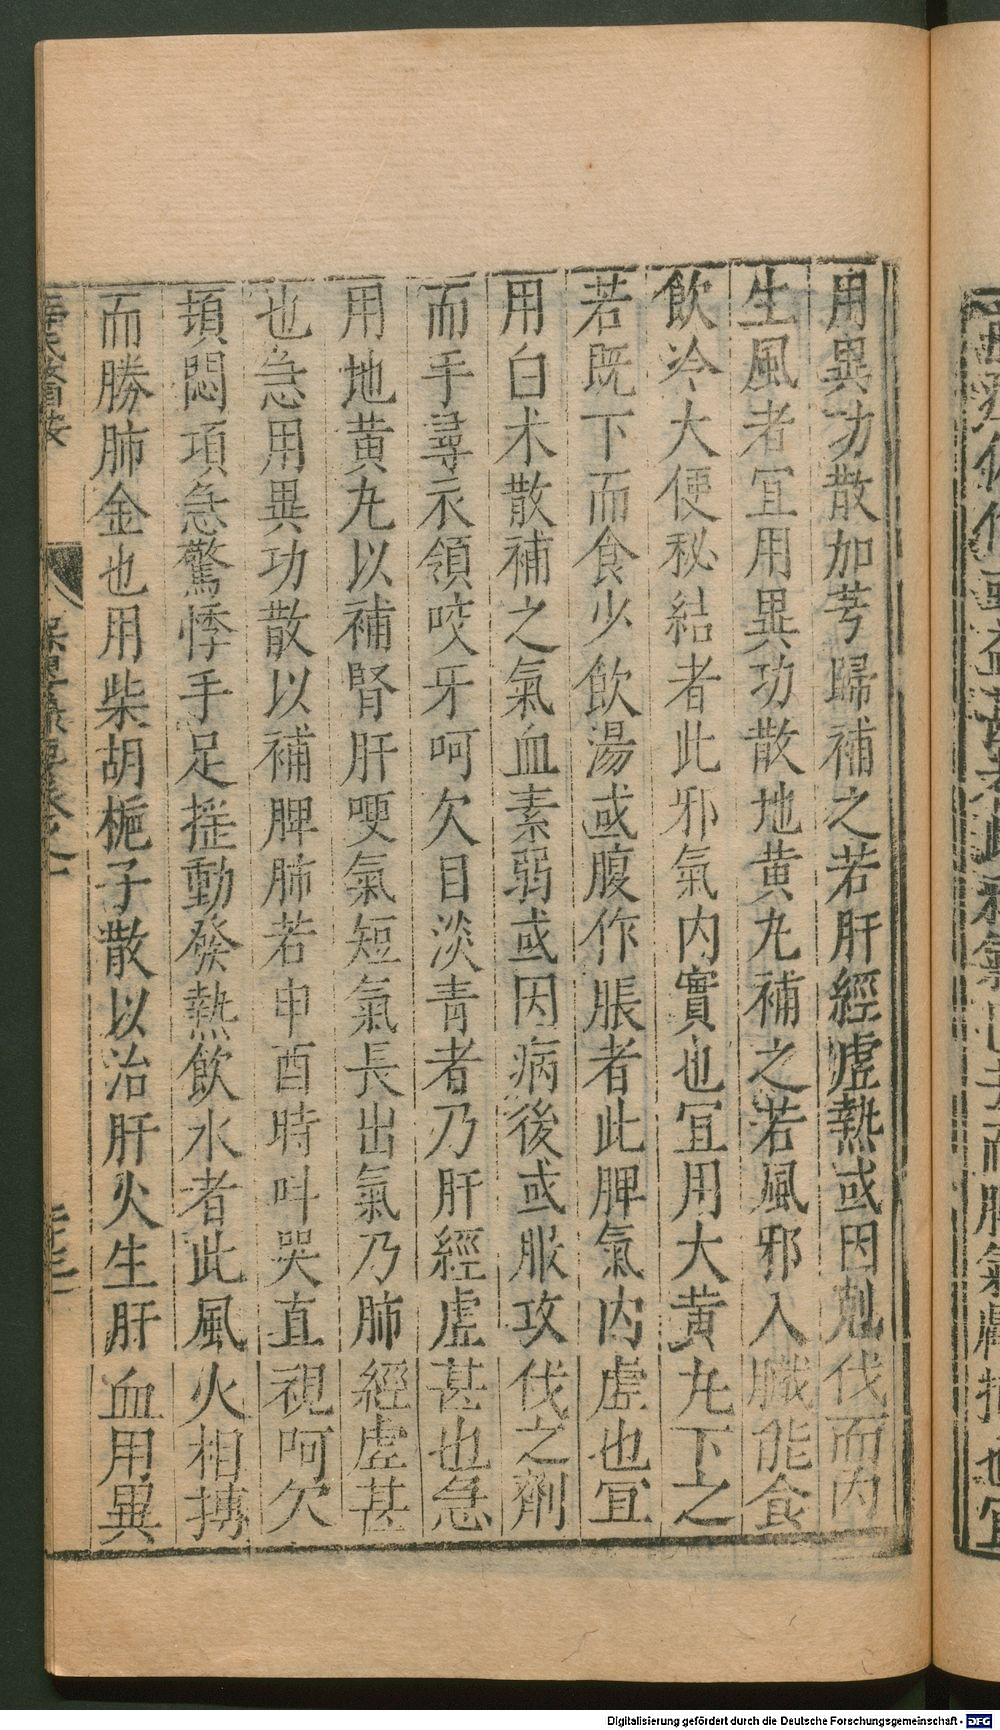 用異功散加芎歸補之若肝經虛熱或因剋伐而内
生風者宜用異功散地黄九補之若風邪入臟能食
飲冷大便秘結者此邪氣内實也宜用大黄九下之
若既下而食少飲湯或腹作脹者此脾氣内虛也宜
用白朮散補之氣血素弱或因病後或服攻伐之劑
而手尋衣領咬牙呵欠目淡青者乃肝經虛甚也急
用地黄九以補腎肝哽氣短氣長出氣乃肺經虛甚
也急用異功散以補脾肺若申酉時叫哭直視呵欠
頓悶項急驚悸手足揺動發熱飲水者此風火相摶
而勝肺金也用柴胡梔子散以治肝火生肝血用異
Digitalisierung gefördert durch die Deutsche Forschungsgemeinschaft - DFG